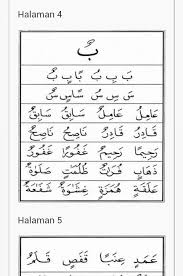 Halaman 4
بٌ
بَ بِ بُ بًا بٍ بٌ
سَ سِ سُ سًا سٍ سٌ
عَامِلُ عَامِلٌ سَابِقُ سَابِقٌ
قَادِرُ قَادِرٌ نَاصِحُ نَاصِحٌ
رَحِيمًا رَحِيمٌ غَفُورًا غَفُورٌ
ذَهَابٍ قُرْبَاتٌ ظُلُمٰتٍ صَلَوٰةٌ
عَلَقَةٍ هُمَزَةٍ غِشٰوَةٌ شَفٰعَةٌ
Halaman 5
عَمَدٍ عِنَبًا قَفَصٍ قَلَمٌ